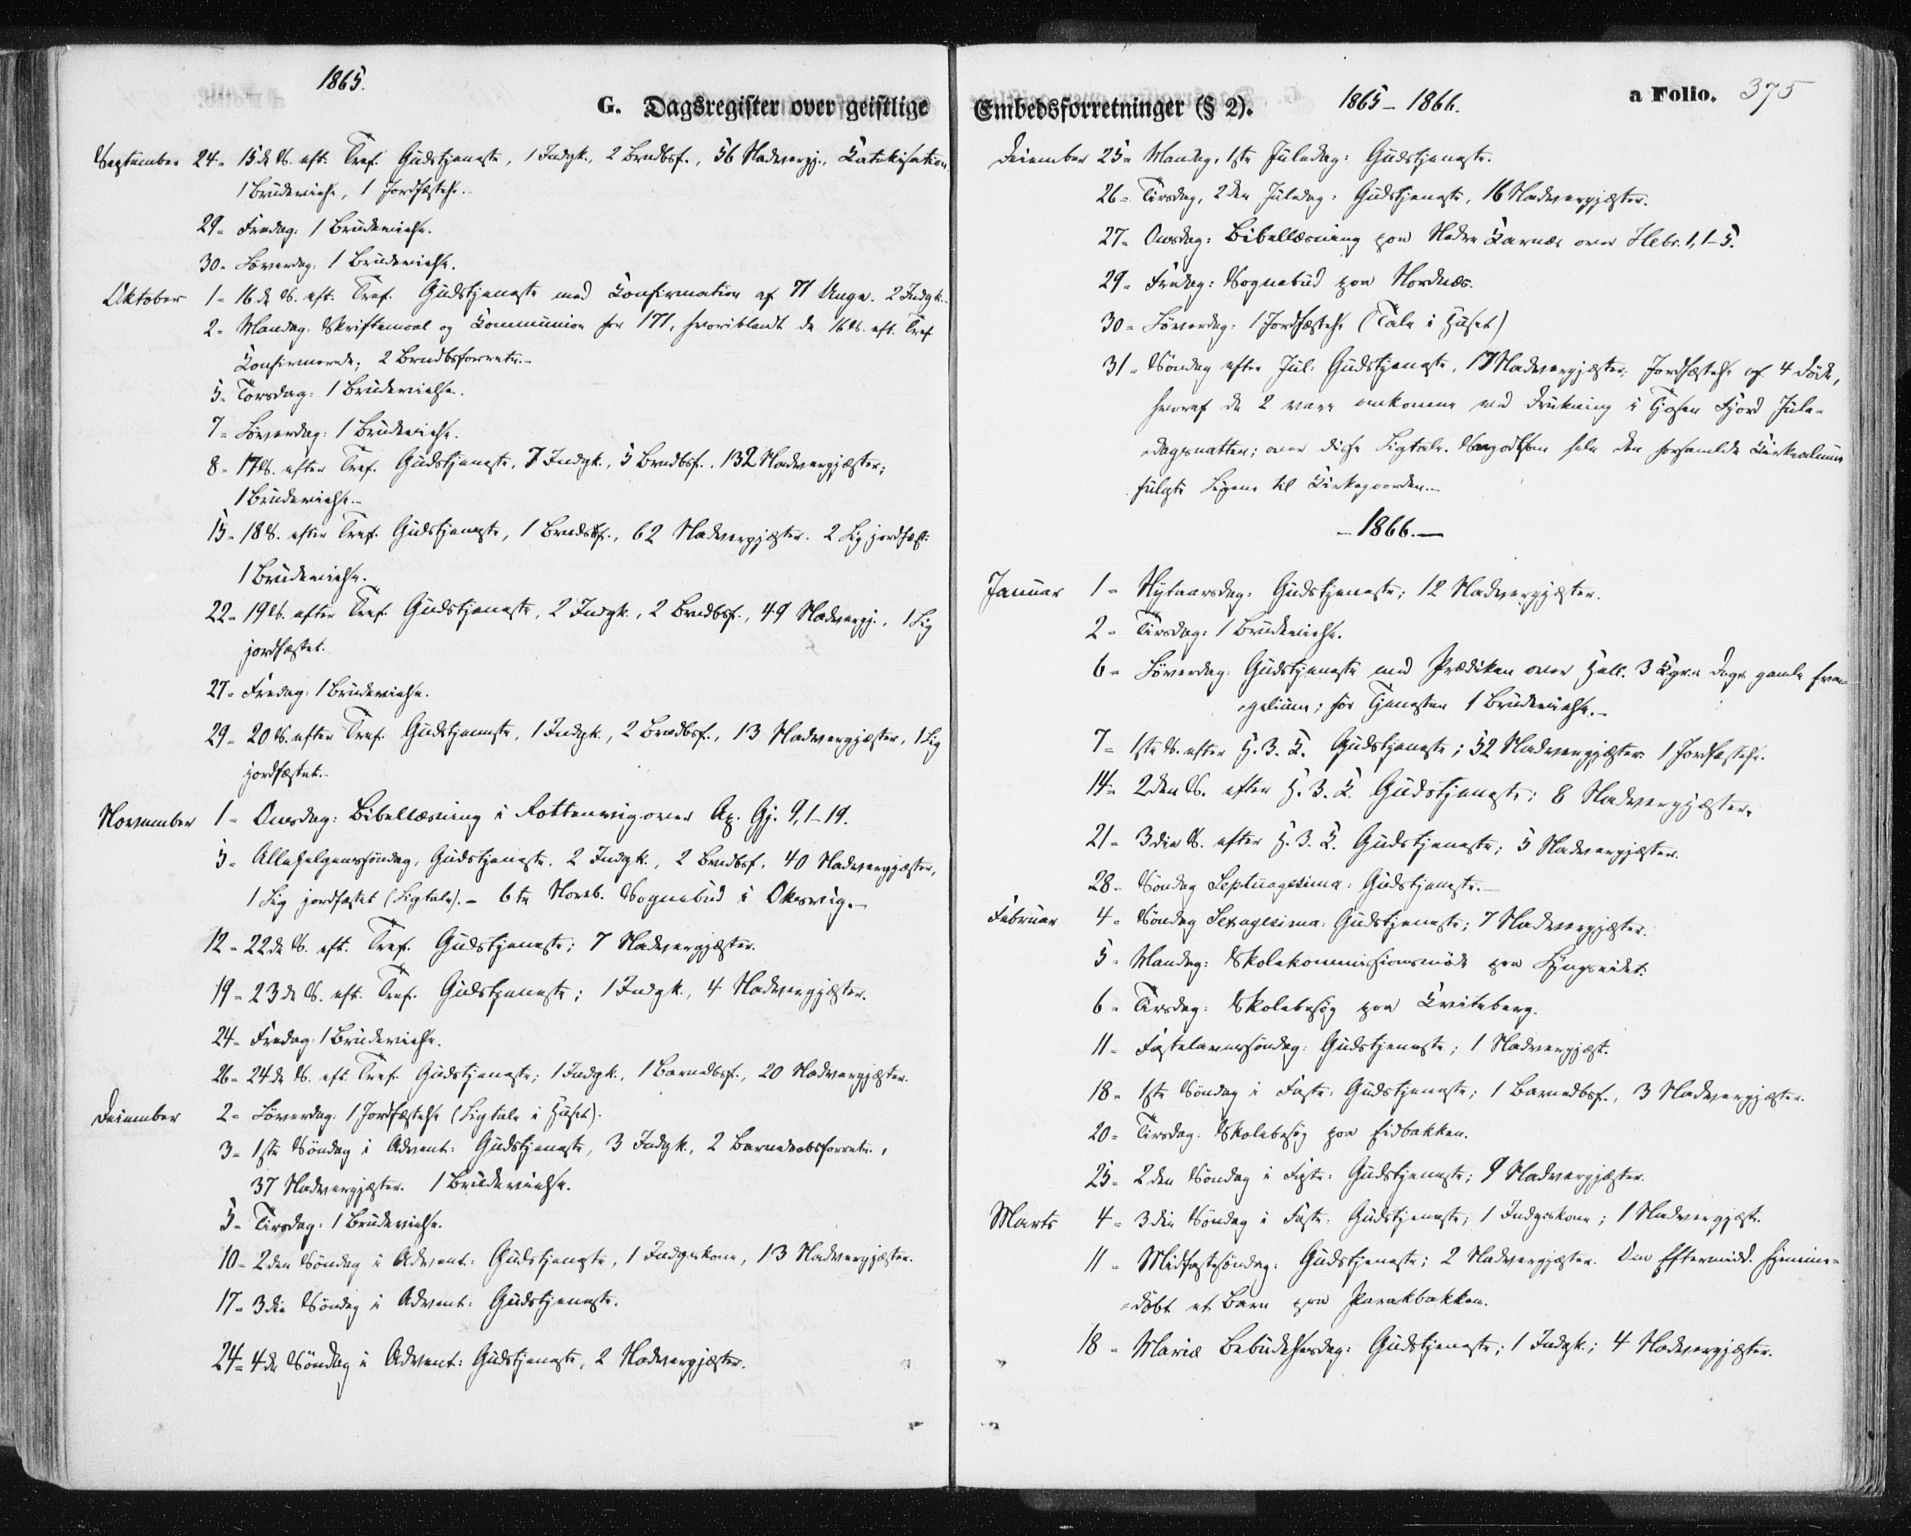 1865.
G. Dagsregister over geistlige
September 24- 15de S. eft. Tref. Gudstjeneste, 1 Indgk., 2 Brndbsf., 56 Nadvergj., Katekisation
1 Brudevielse, 1 Jordfæstelse.
29- Fredag: 1 Brudevielse.
30- Löverdag: 1 Brudevielse.
Oktober 1- 16de S. eft. Tref. Gudstjeneste med Confirmation af 71 Unge. 2 Indgk.
2- Mandag. Skriftemaal og Communion for 171, hvoriblandt de 16 S. eft. Tref
Confirmerede; 2 Brndbsforretn.-
5- Torsdag: 1 Brudevielse.
7- Löverdag: 1 Brudevielse.
8- 17 S. efter Tref. Gudstjeneste, 7 Indgk., 5 Brndbsf., 132 Nadvergjæster;
1 Brudevielse.-
15- 18 S. efter Tref. Gudstjeneste, 1 Brndbsf., 62 Nadvergjæster. 2 Lig jordfæst.
1 Brudevielse.
22- 19 S. efter Tref. Gudstjeneste, 2 Indgk., 2 Brndbsf., 49 Nadvergj., 1 Lig
jordfæstet.
27- Fredag: 1 Brudevielse.
29- 20 S. efter Tref. Gudstjeneste, 1 Indgk., 2 Brndbsf., 13 Nadvergjæster, 1 Lig
jordfæstet.-
November 1- Onsdag: Bibellæsning i Rottenvig over Ap. Gj. 9,1-19.
5- Allehelgenssöndag, Gudstjeneste, 2 Indgk., 2 Brndbsf., 40 Nadvergjæster,
1 Lig jordfæstet (Ligtale).- 6te Novb. Sognebud i Okesvig.-
12- 22de S. eft. Tref. Gudstjeneste; 7 Nadvergjæster.
19- 23de S. eft. Tref. Gudstjeneste; 1 Indgk., 4 Nadvergjæster.
24- Fredag: 1 Brudevielse.
26- 24de S. eft. Tref. Gudstjeneste; 1 Indgk., 1 Barnedbsf., 20 Nadvergjæster.
December 2- Löverdag: 1 Jordfæstelse (Ligtale i Huset).
3- 1ste Söndag i Advent: Gudstjeneste, 3 Indgk., 2 Barnedaabsforretn.,
37 Nadvergjæster. 1 Brudevielse.
5- Tirsdag: 1 Brudevielse.
10- 2den Söndag i Advent: Gudstjeneste, 1 Indgskone, 13 Nadvergjæster.
17- 3die Söndag i Advent: Gudstjeneste.
24- 4de Söndag i Advent: Gudstjeneste, 2 Nadvergjæster.
Embedsforretninger (§ 2). 1865-1866. a Folio. 375
December 25- Mandag, 1ste Juledag: Gudstjeneste.
26- Tirsdag, 2den Juledag: Gudstjeneste, 16 Nadvergjæster.
27- Onsdag: Bibellæsning paa Nedre Karnæs over Hebr. 1,1-5.
29- Fredag: Sognebud paa Nordnæs.
30- Löverdag: 1 Jordfæstelse (Tale i Huset)
31- Söndag efter Jul: Gudstjeneste, 17 Nadvergjæster; Jordfæstelse af 4 Döde,
hvoraf de 2 vare omkomne ved Drukning i Fjord Jule-
-dagsnatten; over disse Ligtale. hele den forsamlede Kirkealmue
fulgte Ligene til Kirkegaarden.-
-1866.-
Januar 1- Nytaarsdag: Gudstjeneste; 12 Nadvergjæster.
2- Tirsdag: 1 Brudevielse.
6- Löverdag: Gudstjeneste med Prædiken over Hell. 3 Kgers Dags gamle Evan-
-gelium; för Tjenesten 1 Brudevielse.-
7- 1ste S. efter H. 3. K. Gudstjeneste; 52 Nadvergjæster. 1 Jordfæstelse.
14- 2den S. efter H. 3. K. Gudstjeneste; 8 Nadvergjæster.
21- 3die S. efter H. 3. K. Gudstjeneste; 5 Nadvergjæster.
28- Söndag Septuagesima: Gudstjeneste.-
Februar 4- Söndag Sexagesima: Gudstjeneste; 7 Nadvergjæster.
5- Mandag: Skolekommissionsmöde paa Lyngseidet.
6- Tirsdag: Skolebesög paa Kviteberg.
11- Fastelavnssöndag: Gudstjeneste; 1 Nadvergjæst.
18- 1ste Söndag i Faste: Gudstjeneste; 1 Barnedbsf., 3 Nadvergjæster.
20- Tirsdag: Skolebesög paa Eidbakken.
25- 2den Söndag i Faste: Gudstjeneste; 9 Nadvergjæster.
Marts 4- 3die Söndag i Faste: Gudstjeneste; 1 Indgskone; 1 Nadvergjæst.
11- Midfastesöndag: Gudstjeneste; 2 Nadvergjæster. Om Eftermidd. hjemme-
-döbt et Barn paa Parakbakken.
18- Mariæ Bebudelsesdag: Gudstjeneste; 1 Indgk.; 4 Nadvergjæster.